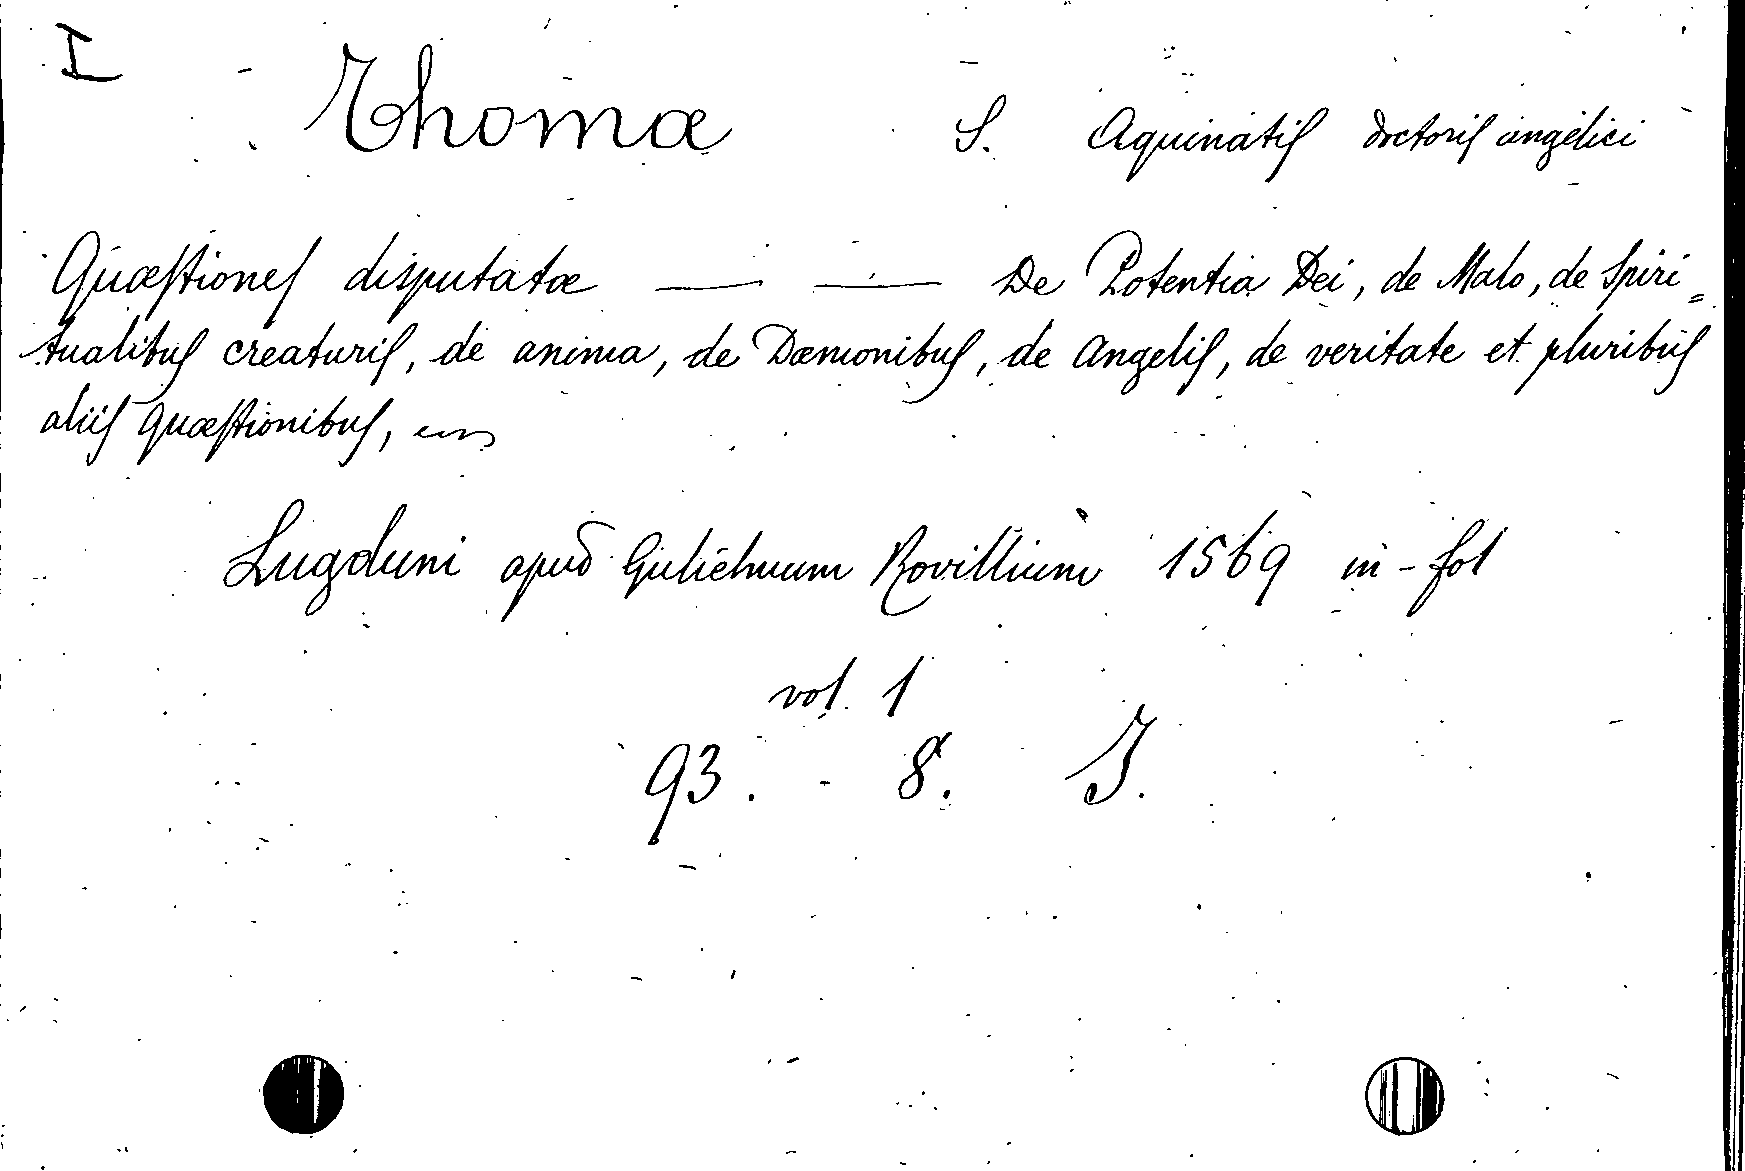 I
Thomæ S. Aquinatis doctoris angelici
Quæstiones disputatæ — — De Potentia Dei, de Malo, de Spiri=
tualibus creaturis, de anima, de Dæmonibus, de Angelis, de veritate et pluribus
aliis quæstionibus,
Lugduni apud Gulielmum Rovillium 1569 in-fol
vol. 1
93. - 8. I.